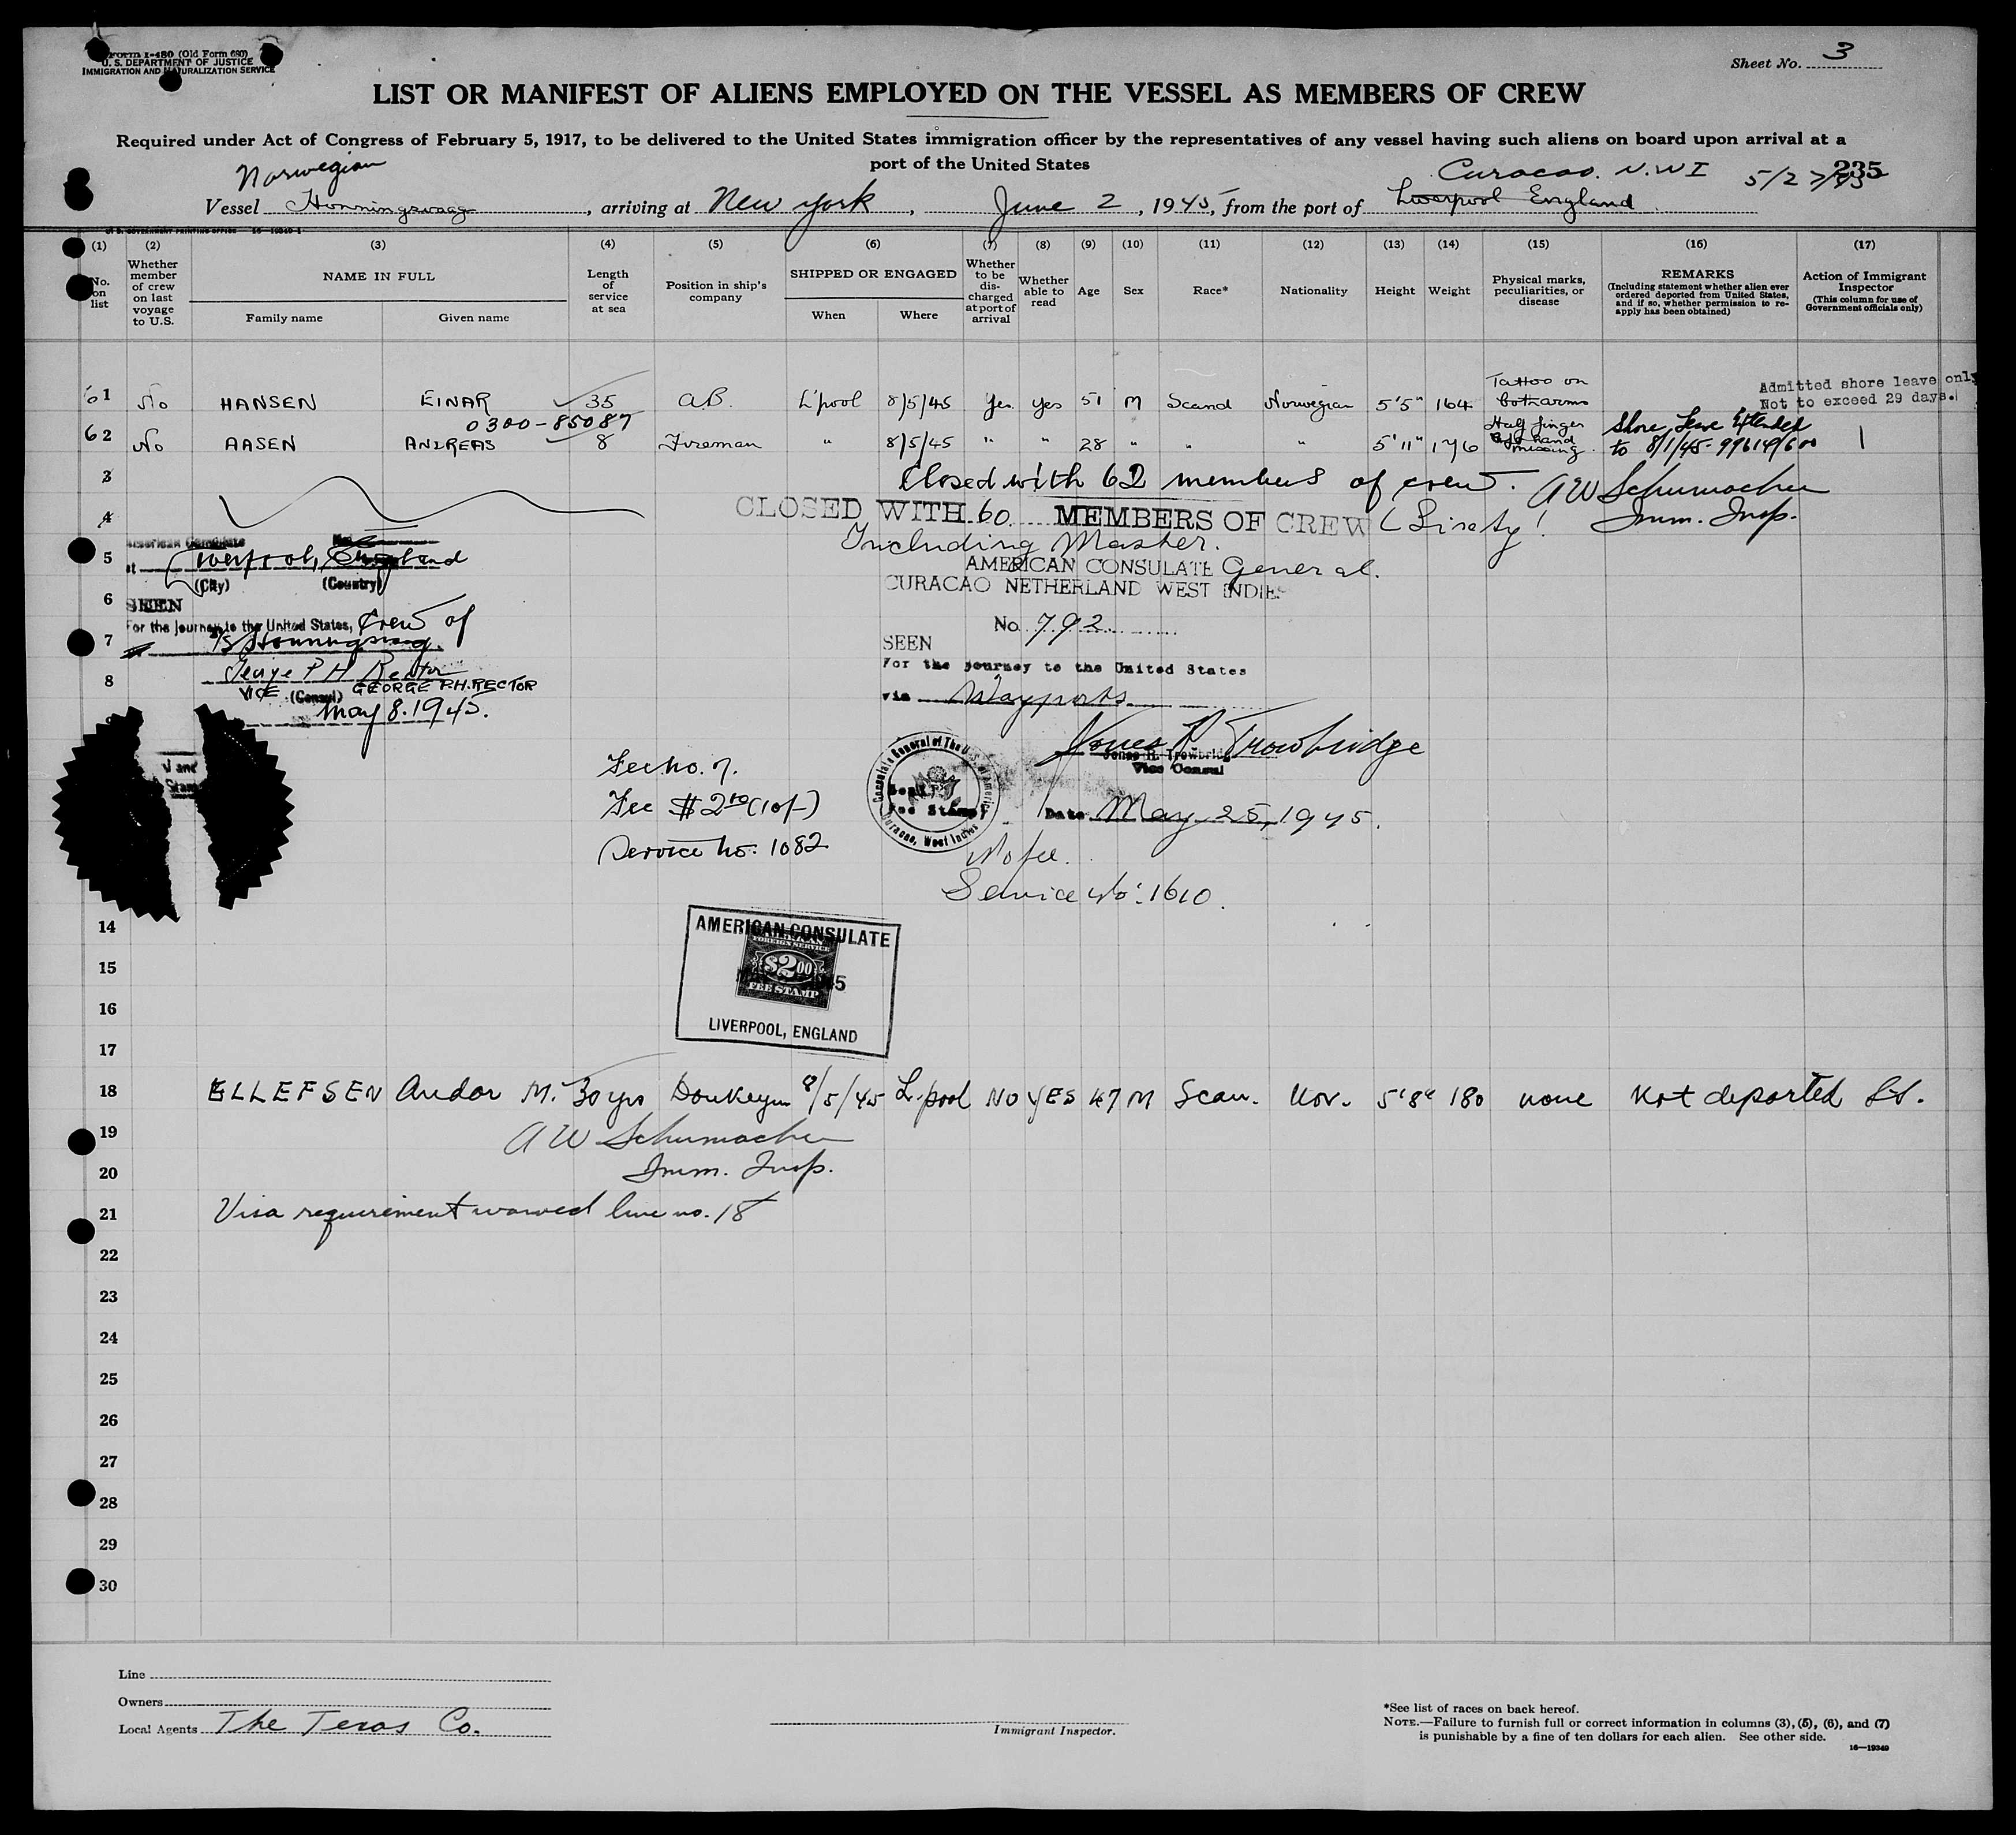 Form I-480 (Old Form 680)
U. S. DEPARTMENT OF JUSTICE
IMMIGRATION AND NATURALIZATION SERVICE
Sheet No. 3
LIST OR MANIFEST OF ALIENS EMPLOYED ON THE VESSEL AS MEMBERS OF CREW
Required under Act of Congress of February 5, 1917, to be delivered to the United States immigration officer by the representatives of any vessel having such aliens on board upon arrival at a
port of the United States
Norwegian
Curacao. N.W.I 5/27/45
235
Vessel Honningsvaag, arriving at New York, June 2, 1945, from the port of Liverpool England
(1) (2) (3) (4) (5) (6) (7) (8) (9) (10) (11) (12) (13) (14) (15) (16) (17)
No. on list
Whether member of crew on last voyage to U.S.
NAME IN FULL
Family name
Given name
Length of service at sea
Position in ship's company
SHIPPED OR ENGAGED
When
Where
Whether to be discharged at port of arrival
Whether able to read
Age
Sex
Race*
Nationality
Height
Weight
Physical marks, peculiarities, or disease
REMARKS
(Including statement whether alien ever ordered deported from United States, and if so, whether permission to reapply has been obtained)
Action of Immigrant Inspector
(This column for use of Government officials only)
61 No HANSEN EINAR 35 A.B. L'pool 8/5/45 Yes. Yes 51 M Scand Norwegian 5'5" 164 Tattoo on both arms
Admitted shore leave only
Not to exceed 29 days.
0300-85087
62 No AASEN ANDREAS 8 Fireman " 8/5/45 " " 28 " " " 5'11" 176 Half finger hand missing.
Shore Leave Extended
to 8/1/45-
3
Closed with 62 members of crew.
A W Schumacher
Imm. Insp.
4
CLOSED WITH 60 MEMBERS OF CREW (Sixty)
Including Master.
American Consulate
5
at Liverpool, England
(City) (Country)
AMERICAN CONSULATE General.
CURACAO NETHERLAND WEST INDIES
6
SEEN
For the journey to the United States, Crew of
No 792
7
Honningsvaag.
SEEN
For the journey to the United States
8
George P H Rector
VICE (Consul) GEORGE P.H. RECTOR
via Wayports
May 8. 1945.
James R. Trowbridge
Vice Consul
Fee No. 7.
Fee $2.00 (10/-)
Service No. 1082
Consulate General of The U.S. of America
Curacao, West Indies
Fee Stamp
Date May 25, 1945.
No fee.
Service No: 1610.
14
AMERICAN CONSULATE
FOREIGN SERVICE
$2.00
FEE STAMP
LIVERPOOL, ENGLAND
15
16
17
18 ELLEFSEN Andor M. 30 yrs Donkeym 8/5/45 L.pool NO YES 47 M Scan. Nor. 5'8" 180 none Not deported
19
A W Schumacher
20
Imm. Insp.
21
Visa requirement waived line no. 18
22
23
24
25
26
27
28
29
30
Line
Owners
Local Agents The Texas Co.
Immigrant Inspector.
*See list of races on back hereof.
NOTE.—Failure to furnish full or correct information in columns (3), (5), (6), and (7)
is punishable by a fine of ten dollars for each alien. See other side.
16—19349